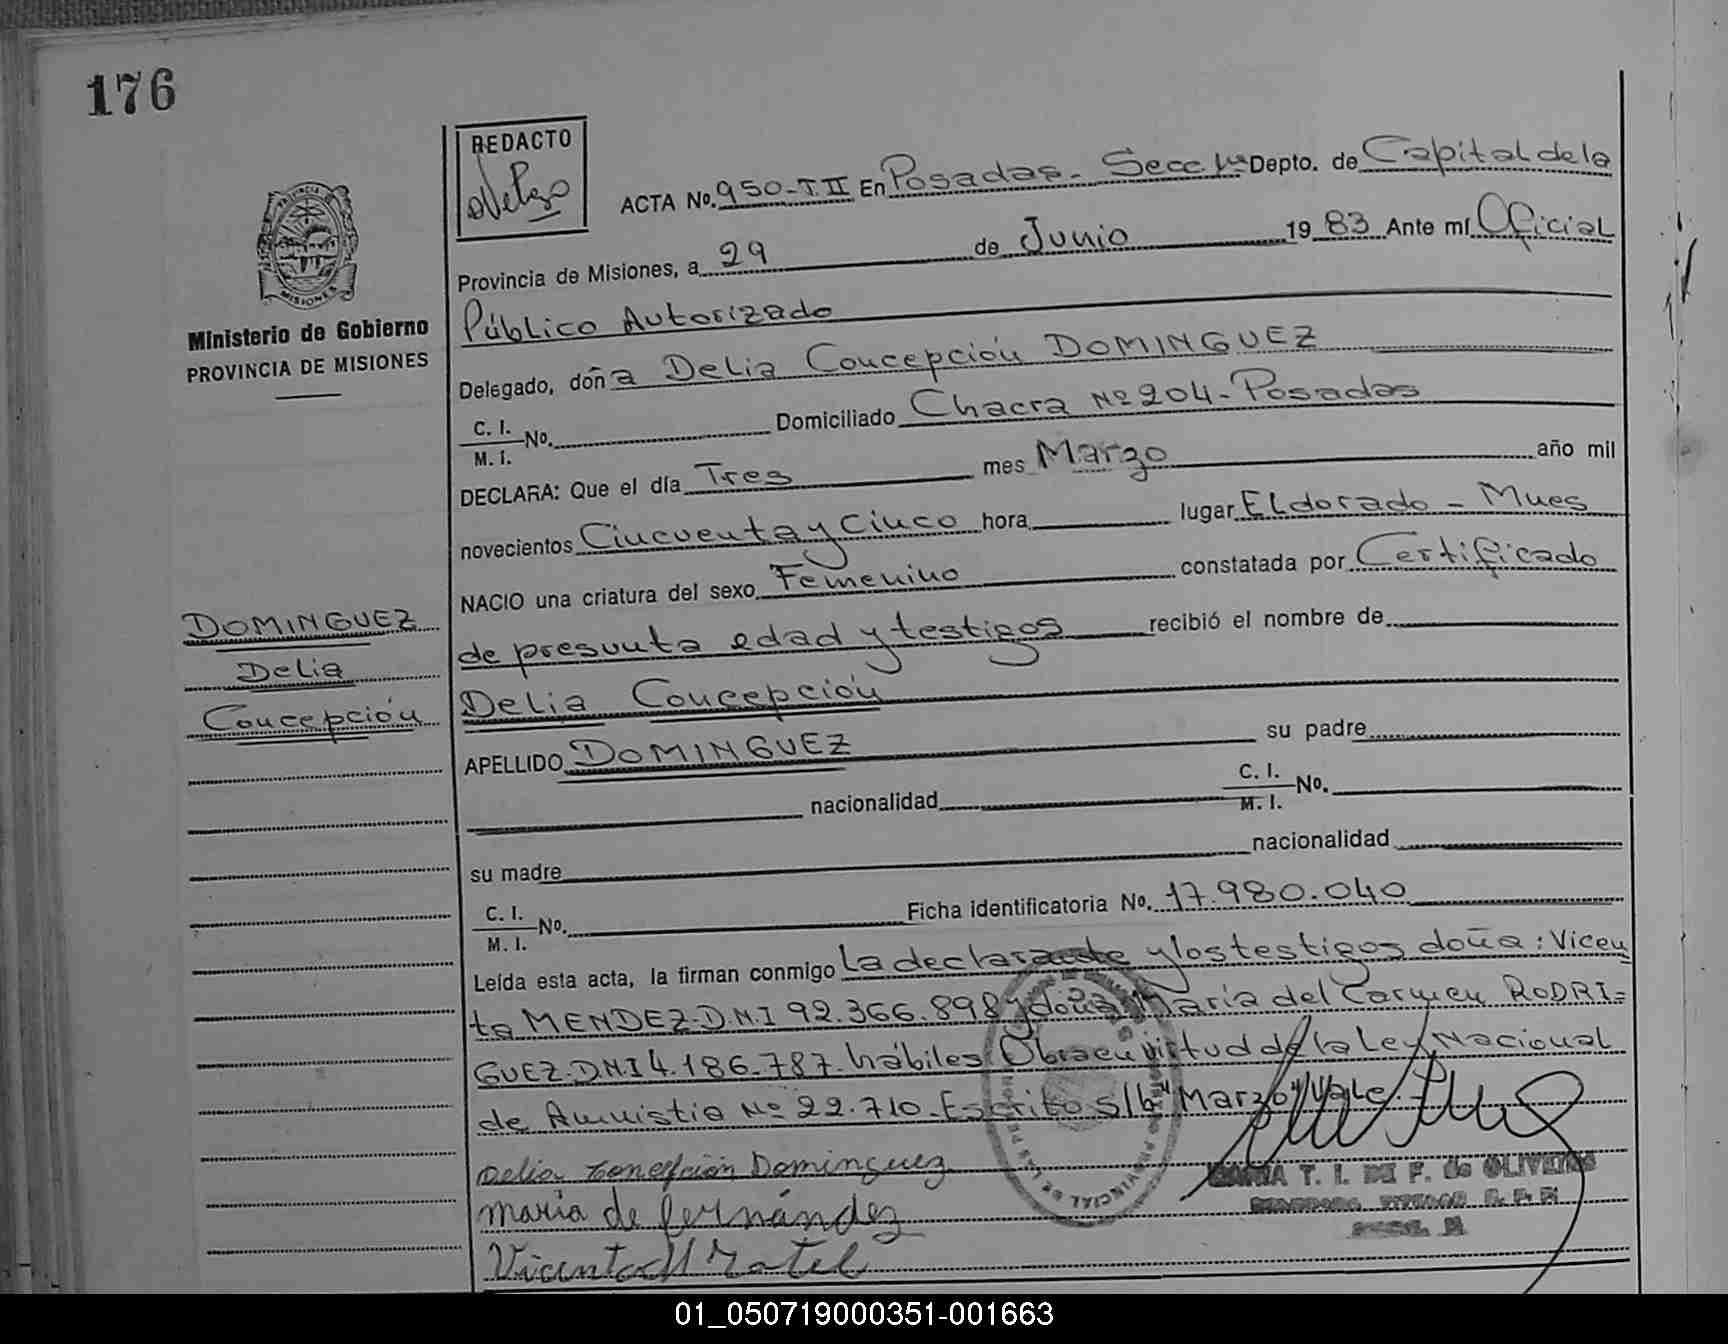 176
REDACTO
ACTA No. 950-T.II En Posadas. Secc 1ª Depto. de Capital de la
Provincia de Misiones, a 29 de Junio 1983 Ante mí Oficial
Público Autorizado
MISIONES
Ministerio de Gobierno
PROVINCIA DE MISIONES
Delegado, doña Delia Concepción DOMINGUEZ
C. I.
M. I. No. Domiciliado Chacra Nº 204 - Posadas
DECLARA: Que el día Tres mes Marzo año mil
novecientos Cincuenta y Cinco hora lugar Eldorado - Mnes
NACIO una criatura del sexo Femenino constatada por Certificado
de presunta edad y testigos recibió el nombre de
Delia Concepción
DOMINGUEZ
Delia
Concepción
APELLIDO DOMINGUEZ su padre
nacionalidad C. I.
M. I. No.
su madre nacionalidad
C. I.
M. I. No. Ficha identificatoria No. 17.980.040
Leída esta acta, la firman conmigo La declarante y los testigos doña: Vicen
ta MENDEZ. D.N.I 92.366.898 y doña María del Carmen RODRI=
GUEZ. DNI 4.186.787. hábiles. Obra en virtud de la Ley Nacional
de Amnistia Nº 22.710. Escrito s/b "Marzo" Vale.
Delia Concepción Dominguez
MARIA T. I. DE F. de OLIVEIRA
maria de fernández
Vicenta M
01_050719000351-001663